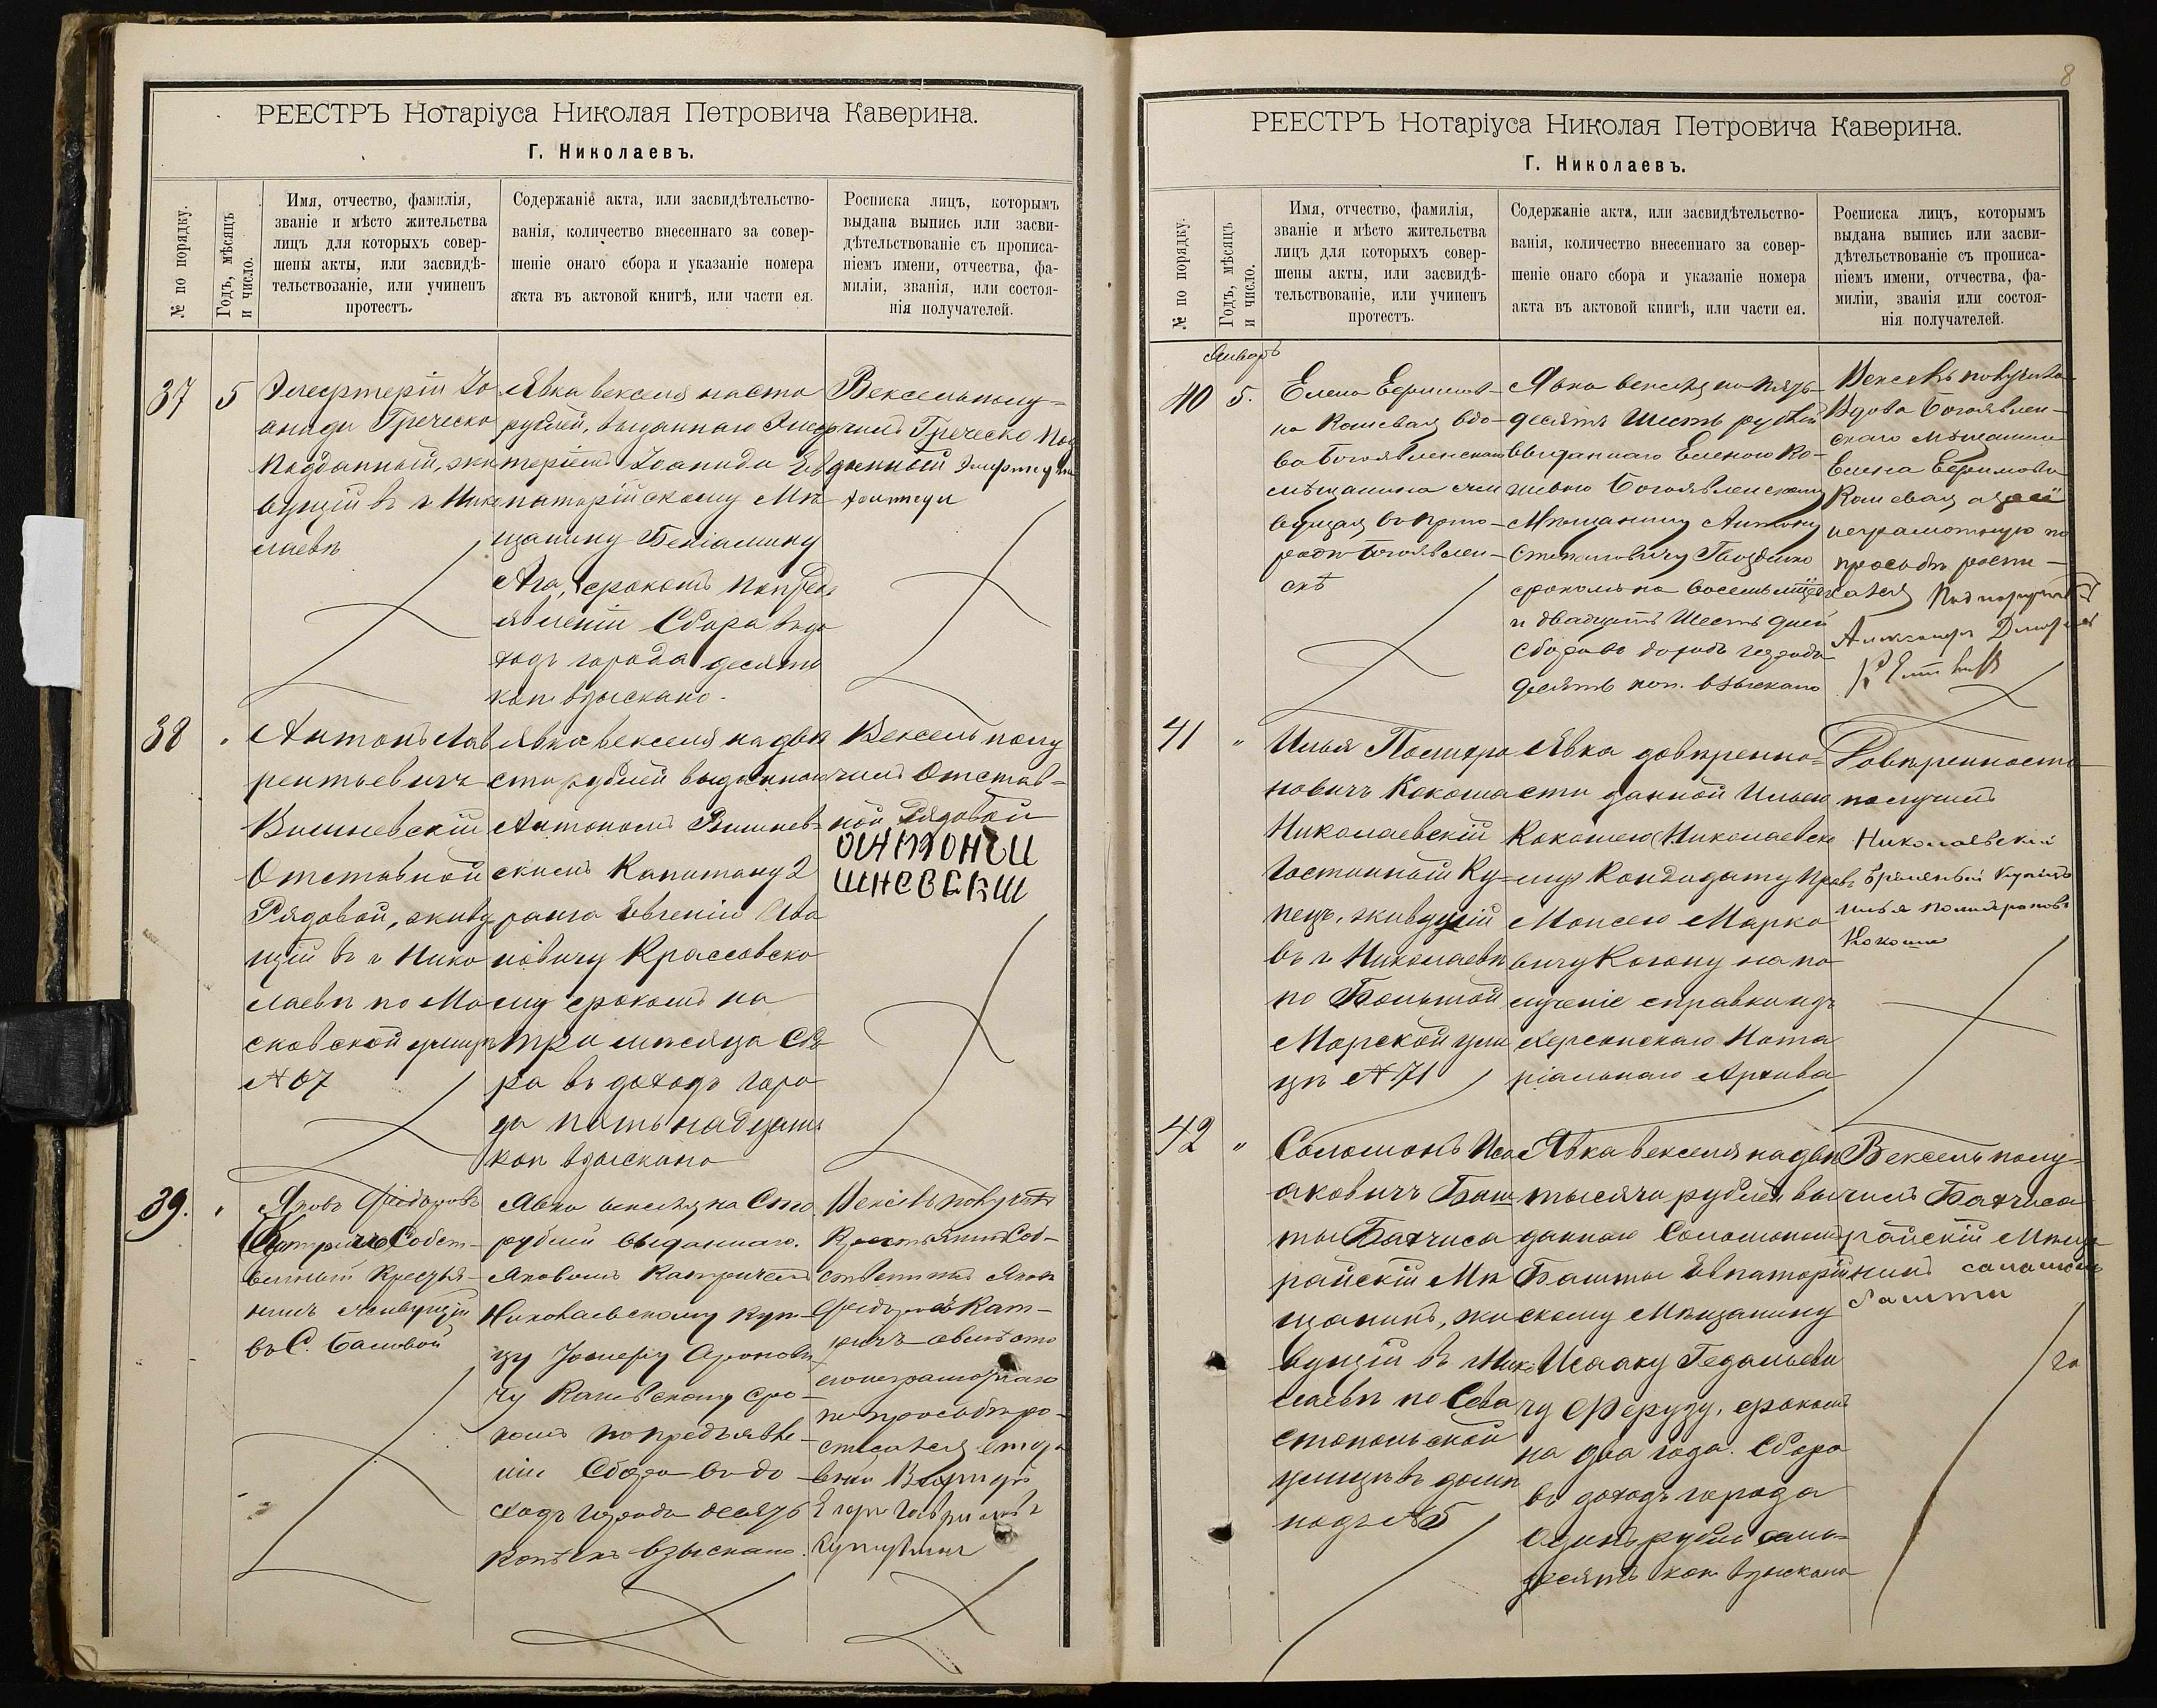 РЕЕСТРЪ Нотаріуса Николая Петровича Каверина.
Г. Николаевъ.
№ по порядку.
Годъ, мѣсяцъ
и число.
Имя, отчество, фамилія,
званіе и мѣсто жительства
лицъ для которыхъ совер-
шены акты, или засвидѣ-
тельствованіе, или учиненъ
протестъ.
Содержаніе акта, или засвидѣтельство-
ванія, количество внесеннаго за совер-
шеніе онаго сбора и указаніе номера
акта въ актовой книгѣ, или части ея.
Росписка лицъ, которымъ
выдана выпись или засви-
дѣтельствованіе съ прописа-
ніемъ имени, отчества, фа-
миліи, званія, или состоя-
нія получателей.
37
5
Элефтерій Іо
аниди Греческо
подданный, жи
вущій въ г Нико
лаевѣ
Явка векселя на сто
рублей, выданнаго Элеф
теріемъ Іоаниди Ев
паторійскому Мѣ
щанину Беніамину
Ага, срокомъ по предъ
явленіи Сбора въ до
ходъ города десять
коп взыскано.
Вексель полу-
чилъ Греческо под
данный
38
"
Антонъ Лав
рентьевичъ
Вишневскій
Отставной
Рядовой, живу
щій въ г Нико
лаевѣ по Мо
сковской улицѣ
№ 67
Явка векселя на двѣ
сти рублей выданнаго
Антономъ Вишнев-
скимъ Капитану 2
ранга Евгенію Ива
новичу Крассовско
му срокомъ на
три мѣсяца Сбо
ра въ доходъ горо
да пятьнадцать
коп взыскано
Вексель полу
чилъ Отстав-
ной Рядовой
39.
"
Яковъ Федоровъ
Катричъ Собст-
венникъ Крестья-
нинъ живущій
въ С. Баловой
Явка векселя на Сто
рублей выданнаго.
Яковомъ Катричемъ
Николаевскому Куп-
цу Іосифу Аронови
чу Каневскому сро-
комъ по предъявле-
ніи Сбора въ до-
ходъ города десять
копѣекъ взыскано.
Вексель получилъ
Крестьянинъ Соб-
ственникъ Яковъ
Федоровъ Кат-
ричъ а вмѣсто
его неграмотнаго
по просьбѣ ро-
списался
Егоръ Гавриловъ
8
РЕЕСТРЪ Нотаріуса Николая Петровича Каверина.
Г. Николаевъ.
№ по порядку.
Годъ, мѣсяцъ
и число.
Имя, отчество, фамилія,
званіе и мѣсто жительства
лицъ для которыхъ совер-
шены акты, или засвидѣ-
тельствованіе, или учиненъ
протестъ.
Содержаніе акта, или засвидѣтельство-
ванія, количество внесеннаго за совер-
шеніе онаго сбора и указаніе номера
акта въ актовой книгѣ, или части ея.
Росписка лицъ, которымъ
выдана выпись или засви-
дѣтельствованіе съ прописа-
ніемъ имени, отчества, фа-
миліи, званія или состоя-
нія получателей.
Январь
40
5.
Елена Ефимов-
на Кошевая вдо-
ва Богоявленскаго
мѣщанина жи
вущая въ При-
родѣ Богоявлен-
скѣ
Явка векселя на пять-
десятъ шесть рублей
выданнаго Еленою Ко-
шевою Богоявленскому
Мѣщанину Антону
Степановичу Гвозденко
срокомъ на восемь мѣсяц
и двадцать шесть дней
Сбора въ доходъ города
десять коп. взыскано
Вексель получила
Вдова Богоявлен-
скаго мѣщанина
Елена Ефимовна
Кошевая а за нее
неграмотную по
просьбѣ роспи-
сался
Александръ
41
"
Илья Поликро
новичъ Кокоша
Николаевскій
Гостинный Ку-
пецъ, живущій
въ г Николаевѣ
по Большой
Морской ули
цѣ № 71
Явка довѣренно-
сти данной Ильею
Кокошею Николаевско
му Кандидату правъ
Моисею Марко
вичу Когону на по
лученіе справки изъ
Херсонскаго Нота
ріальнаго Архива
Довѣренность
получилъ
Николаевскій
Купецъ
Илья
Кокоша
42
"
Соломонъ Иса
аковичъ Баш
ты Бахчиса
райскій Мѣ
щанинъ, жи
вущій въ г Нико
лаевѣ по Сева
стопольской
улицѣ въ домѣ
подъ № 5
Явка векселя на двѣ
тысячи рублей вы
даннаго Соломономъ
Башты Евпаторій
скому Мѣщанину
Исааку Гедальеви
чу Феруду, срокомъ
на два года. Сбора
въ доходъ города
одинъ рубль
десятъ коп взыскано
Вексель полу-
чилъ Бахчиса
райскій Мѣща
нинъ Соломонъ
Башты